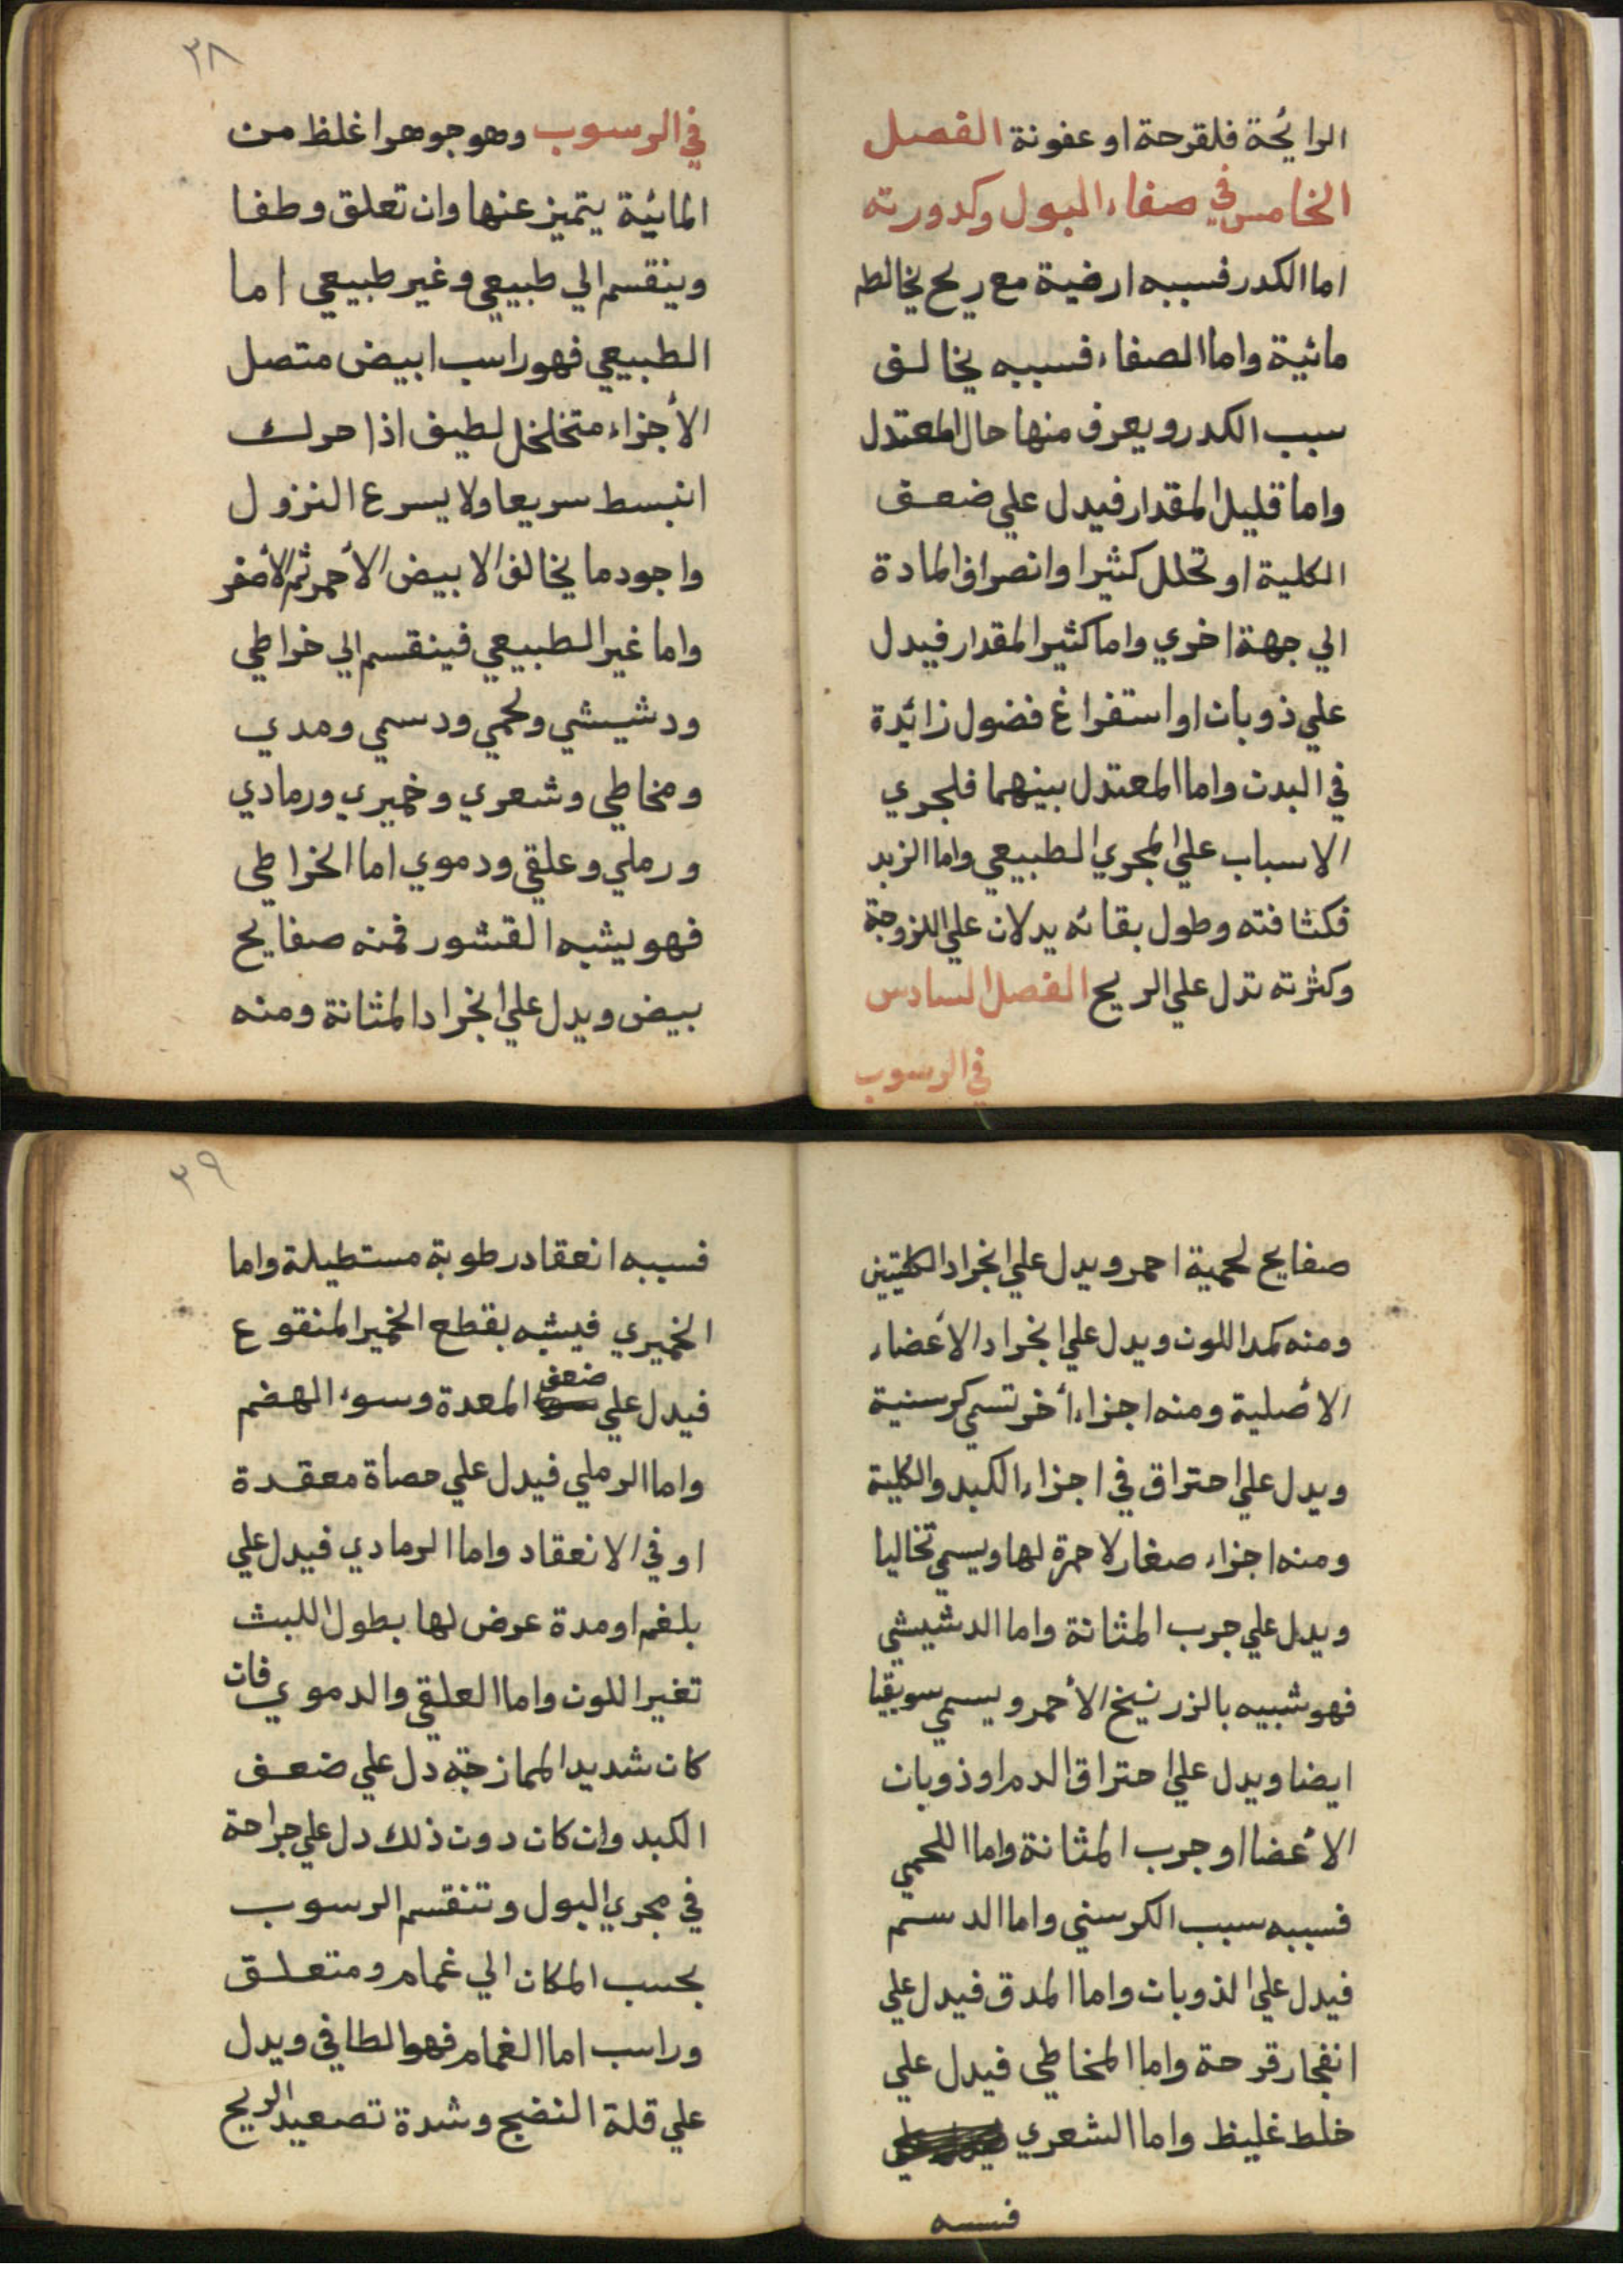 الرايحة فلقرحة او عفونة الفصل
الخامس في صفاء البول وكدورته
اما الكدر فسببه ارضية مع ريح يخالط
مائية واما الصفاء فسببه يخالف
سبب الكدر ويعرف منها حال المعتدل
واما قليل المقدار فيدل علي ضعف
الكلية او تحلل كثيرا وانصراف المادة
الي جهة اخري واما كثير المقدار فيدل
علي ذوبان او استفراغ فضول زائدة
في البدن واما المعتدل بينهما فلجري
الاسباب علي المجري الطبيعي واما الزبد
فكثافته وطول بقائه يدلان علي اللزوجة
وكثرته تدل علي الريح الفصل السادس
في الرسوب
٣٨
في الرسوب وهو جوهر اغلظ من
المائية يتميز عنها وان تعلق وطفا
وينقسم الي طبيعي وغير طبيعي اما
الطبيعي فهو راسب ابيض متصل
الأجزاء متخلخل لطيف اذا حرك
انبسط سريعا ولا يسرع النزول
واجود ما يخالف الابيض الأحمر ثم الأصفر
واما غير الطبيعي فينقسم الي خراطي
ودشيشي ولحمي ودسمي ومدي
ومخاطي وشعري وخميري ورمادي
ورملي وعلقي ودموي اما الخراطي
فهو يشبه القشور فمنه صفايح
بيض ويدل علي انجراد المثانة ومنه
صفايح لحمية احمر ويدل علي انجراد الكليتين
ومنه كمد اللون ويدل علي انجراد الأعضاء
الأصلية ومنه اجزاء أخر تسمي كرسنية
ويدل علي احتراق في اجزاء الكبد والكلية
ومنه اجزاء صغار لا حمرة لها ويسمي نخاليا
ويدل علي جرب المثانة واما الدشيشي
فهو شبيه بالزرنيخ الأحمر ويسمي سويقيا
ايضا ويدل علي احتراق الدم او ذوبان
الأعضا او جرب المثانة واما اللحمي
فسببه سبب الكرسني واما الدسم
فيدل علي الذوبان واما المدق فيدل علي
انفجار قرحة واما المخاطي فيدل علي
خلط غليظ واما الشعري
فسببه
٣٩
فسببه انعقاد رطوبة مستطيلة واما
الخميري فيشبه بقطع الخمير المنقوع
فيدل علي ضعف المعدة وسوء الهضم
واما الرملي فيدل علي حصأة معقدة
او في الانعقاد واما الرمادي فيدل علي
بلغم او مدة عرض لها بطول اللبث
تغير اللون واما العلقي والدموي فان
كان شديد الممازجة دل علي ضعف
الكبد وان كان دون ذلك دل علي جراحة
في مجري البول وتنقسم الرسوب
بحسب المكان الي غمام ومتعلق
وراسب اما الغمام فهو الطافي ويدل
علي قلة النضج وشدة تصعيد الريح